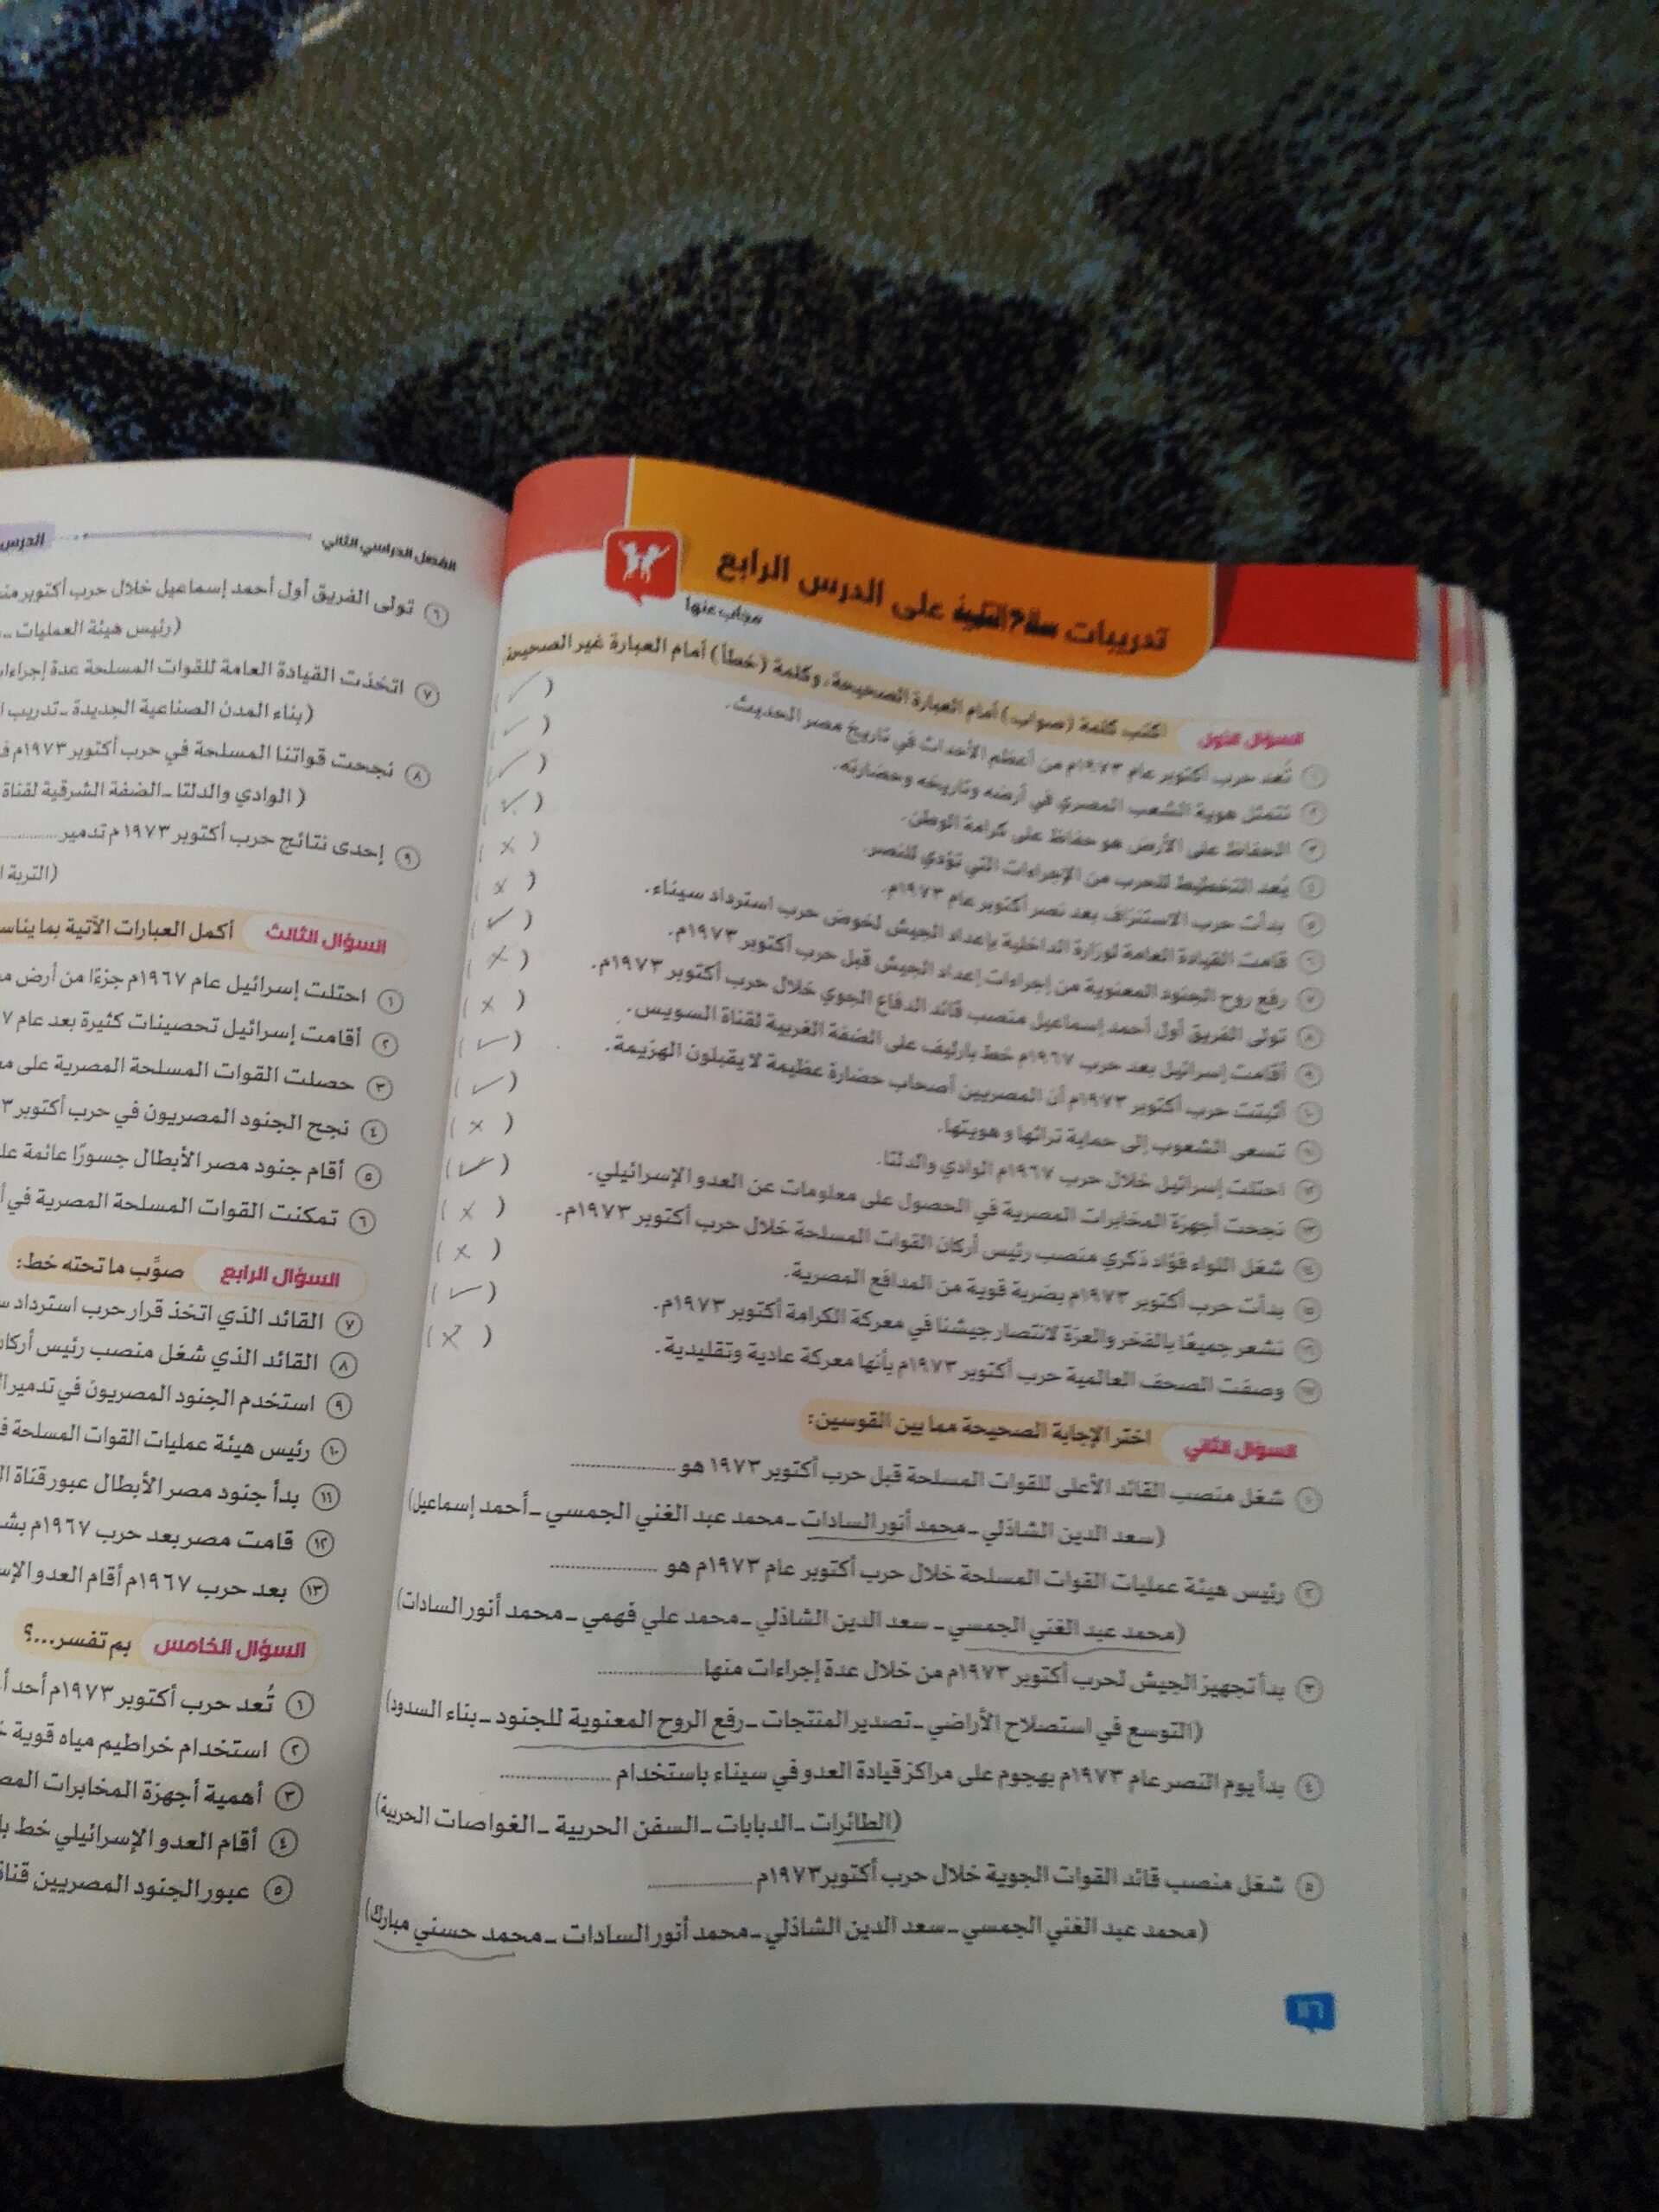 تدريبات سلاح التلميذ على الدرس الرابع
مجاب عنها
السؤال الأول اكتب كلمة (صواب) أمام العبارة الصحيحة، وكلمة (خطأ) أمام العبارة غير الصحيحة:
١ تُعد حرب أكتوبر عام ١٩٧٣م من أعظم الأحداث في تاريخ مصر الحديث. ( ✓ )
٢ تتمثل هوية الشعب المصري في أرضه وتاريخه وحضارته. ( ✓ )
٣ الحفاظ على الأرض هو حفاظ على كرامة الوطن. ( ✓ )
٤ يُعد التخطيط للحرب من الإجراءات التي تؤدي للنصر. ( ✓ )
٥ بدأت حرب الاستنزاف بعد نصر أكتوبر عام ١٩٧٣م. ( × )
٦ قامت القيادة العامة لوزارة الداخلية بإعداد الجيش لخوض حرب استرداد سيناء. ( × )
٧ رفع روح الجنود المعنوية من إجراءات إعداد الجيش قبل حرب أكتوبر ١٩٧٣م. ( ✓ )
٨ تولى الفريق أول أحمد إسماعيل منصب قائد الدفاع الجوي خلال حرب أكتوبر ١٩٧٣م. ( × )
٩ أقامت إسرائيل بعد حرب ١٩٦٧م خط بارليف على الضفة الغربية لقناة السويس. ( × )
١٠ أثبتت حرب أكتوبر ١٩٧٣م أن المصريين أصحاب حضارة عظيمة لا يقبلون الهزيمة. ( ✓ )
١١ تسعى الشعوب إلى حماية تراثها وهويتها. ( ✓ )
١٢ احتلت إسرائيل خلال حرب ١٩٦٧م الوادي والدلتا. ( × )
١٣ نجحت أجهزة المخابرات المصرية في الحصول على معلومات عن العدو الإسرائيلي. ( ✓ )
١٤ شغل اللواء فؤاد ذكري منصب رئيس أركان القوات المسلحة خلال حرب أكتوبر ١٩٧٣م. ( × )
١٥ بدأت حرب أكتوبر ١٩٧٣م بضربة قوية من المدافع المصرية. ( × )
١٦ نشعر جميعًا بالفخر والعزة لانتصار جيشنا في معركة الكرامة أكتوبر ١٩٧٣م. ( ✓ )
١٧ وصفت الصحف العالمية حرب أكتوبر ١٩٧٣م بأنها معركة عادية وتقليدية. ( × )
السؤال الثاني اختر الإجابة الصحيحة مما بين القوسين:
١ شغل منصب القائد الأعلى للقوات المسلحة قبل حرب أكتوبر ١٩٧٣ هو ............
(سعد الدين الشاذلي - محمد أنور السادات - محمد عبد الغني الجمسي - أحمد إسماعيل)
٢ رئيس هيئة عمليات القوات المسلحة خلال حرب أكتوبر عام ١٩٧٣م هو ............
(محمد عبد الغني الجمسي - سعد الدين الشاذلي - محمد علي فهمي - محمد أنور السادات)
٣ بدأ تجهيز الجيش لحرب أكتوبر ١٩٧٣م من خلال عدة إجراءات منها ............
(التوسع في استصلاح الأراضي - تصدير المنتجات - رفع الروح المعنوية للجنود - بناء السدود)
٤ بدأ يوم النصر عام ١٩٧٣م بهجوم على مراكز قيادة العدو في سيناء باستخدام ............
(الطائرات - الدبابات - السفن الحربية - الغواصات الحربية)
٥ شغل منصب قائد القوات الجوية خلال حرب أكتوبر ١٩٧٣م ............
(محمد عبد الغني الجمسي - سعد الدين الشاذلي - محمد أنور السادات - محمد حسني مبارك)
١١٦
الفصل الدراسي الثاني الدرس
٦ تولى الفريق أول أحمد إسماعيل خلال حرب أكتوبر
(رئيس هيئة العمليات -
٧ اتخذت القيادة العامة للقوات المسلحة عدة
(بناء المدن الصناعية الجديدة - تدريب
٨ نجحت قواتنا المسلحة في حرب أكتوبر ١٩٧٣م
(الوادي والدلتا - الضفة الشرقية لقناة
٩ إحدى نتائج حرب أكتوبر ١٩٧٣م تدمير ............
(التربة
السؤال الثالث أكمل العبارات الآتية بما
١ احتلت إسرائيل عام ١٩٦٧م جزءًا من أرض
٢ أقامت إسرائيل تحصينات كثيرة بعد عام
٣ حصلت القوات المسلحة المصرية على
٤ نجح الجنود المصريون في حرب أكتوبر
٥ أقام جنود مصر الأبطال جسورًا عائمة
٦ تمكنت القوات المسلحة المصرية في
السؤال الرابع صوِّب ما تحته خط:
٧ القائد الذي اتخذ قرار حرب استرداد
٨ القائد الذي شغل منصب رئيس
٩ استخدم الجنود المصريون في تدمير
١٠ رئيس هيئة عمليات القوات المسلحة
١١ بدأ جنود مصر الأبطال عبور قناة
١٢ قامت مصر بعد حرب ١٩٦٧م
١٣ بعد حرب ١٩٦٧م أقام العدو
السؤال الخامس بم تفسر...؟
١ تُعد حرب أكتوبر ١٩٧٣م أحد
٢ استخدام خراطيم مياه قوية
٣ أهمية أجهزة المخابرات
٤ أقام العدو الإسرائيلي خط
٥ عبور الجنود المصريين